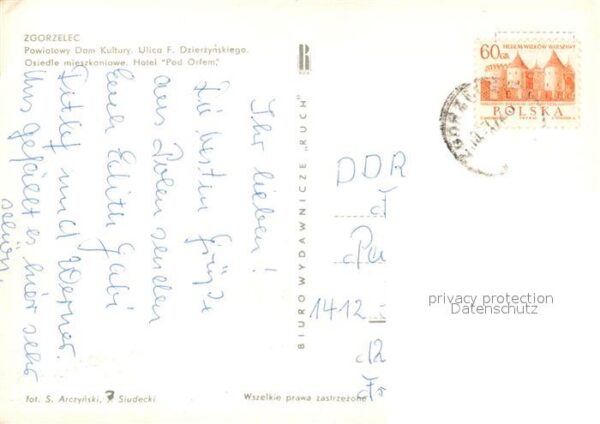 ZGORZELEC
Powiatowy Dom Kultury. Ulica F. Dzierżyńskiego.
Osiedle mieszkaniowe. Hotel "Pod Orłem".
Ihr lieben!
Die besten Grüße
aus Polen senden
Euch Edith Gabi
Detlef und Werner.
Uns gefällt es hier sehr
schön.
fot. S. Arczyński, J. Siudecki
BIURO WYDAWNICZE „RUCH"
Wszelkie prawa zastrzeżone
60 GR
SIEDEM WIEKÓW WARSZAWY
POLSKA
DDR
1412
privacy protection
Datenschutz